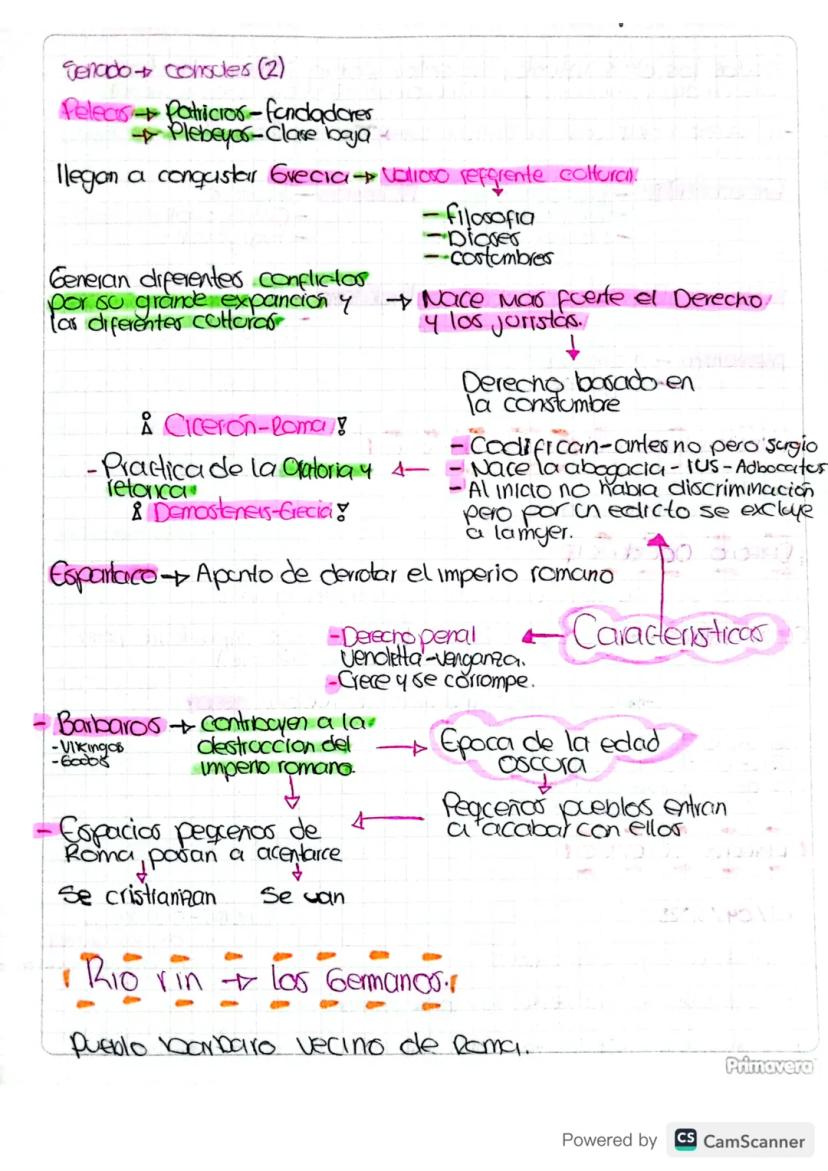 Senado → consules (2)
Peleas → Patricios - fundadores
→ Plebeyos - Clase baja
llegan a conquistar Grecia → Valioso referente cultural.
- Filosofia
- Dioses
- costumbres
Generan diferentes conflictos
por su grande expanción y
las diferentes culturas
→ Nace mas fuerte el Derecho
y los juristas.
Derecho basado en
la constumbre
- Codifican - antes no pero surgio
- Nace la abogacia - IUS - Adbocatus
- Al inicio no habia discriminación
pero por un edicto se excluye
a la mujer.
Cicerón - Roma
- Practica de la Oratoria y
retorica
Demostenes - Grecia
Espartaco → Apunto de derrotar el imperio romano
Caracteristicas
- Derecho penal
Vendetta - venganza.
- Crece y se corrompe.
- Barbaros → contribuyen a la
destruccion del
imperio romano.
- Vikingos
- Godos
Epoca de la edad
oscura
Pequeños pueblos entran
a acabar con ellos
- Espacios pequeños de
Roma, pasan a acentarce
Se cristianizan Se van
Rio rin → los Germanos.
Pueblo barbaro vecino de Roma.
Primavera
Powered by CS CamScanner